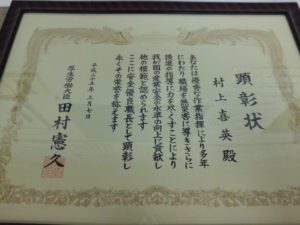 顕彰状
村上喜英殿
あなたは優秀な作業指揮により多年
にわたり職場を無災害に導きさらに
後進の指導に力を尽くすことにより
我が国の産業安全の水準の向上に貢献し
他の模範と認められます
ここに安全優良職長として顕彰し
永くその栄誉を称えます
平成二十年月七日
厚生労働大臣 田村憲久